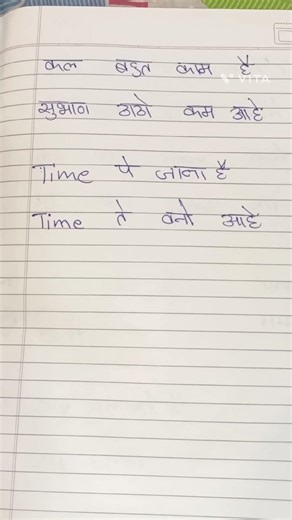 कल बहुत काम है
VITA
सुभाण ठाठो कम आहे
Time पे जाना है
Time ते वनो आहे